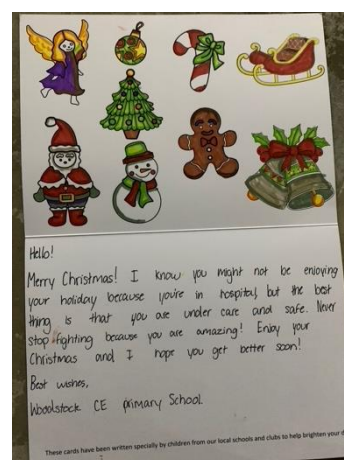 Hello!
Merry Christmas! I know you might not be enjoying
your holiday because you're in hospital, but the best
thing is that you are under care and safe. Never
stop fighting because you are amazing! Enjoy your
Christmas and I hope you get better soon!
Best wishes,
Woodstock CE primary School.
These cards have been written specially by children from our local schools and clubs to help brighten your